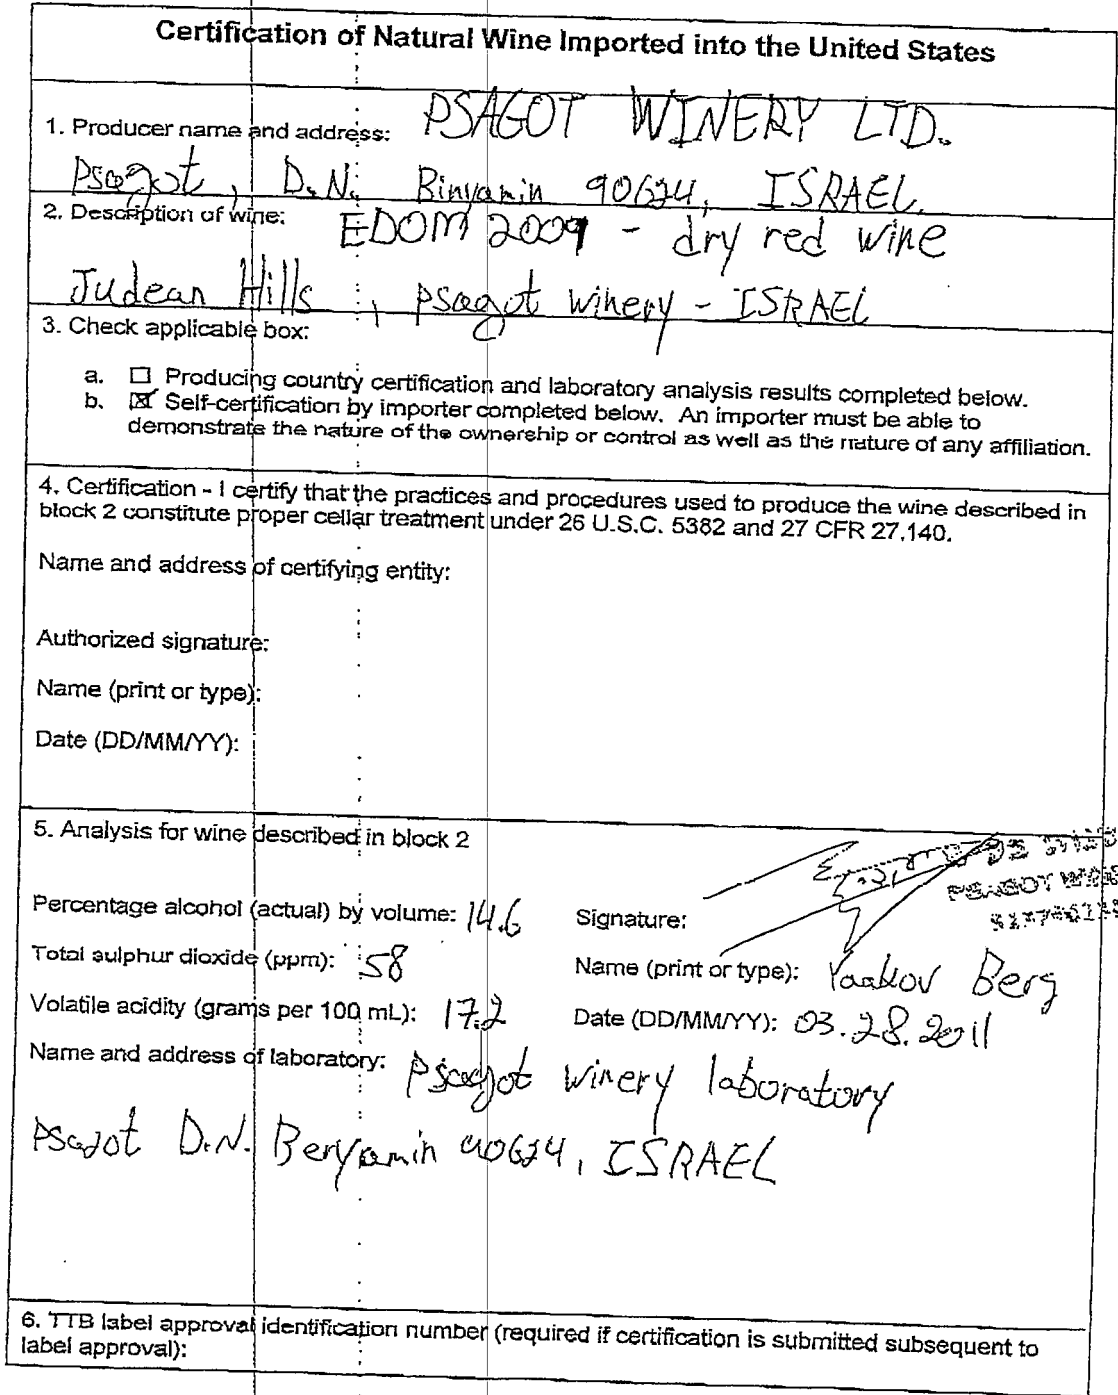 Certification of Natural Wine Imported into the United States
1. Producer name and address: PSAGOT WINERY LTD.
Psagot, D.N. Binyamin 90624, ISRAEL.
2. Description of wine: EDOM 2009 - dry red wine
Judean Hills, psagot winery - ISRAEL
3. Check applicable box:
a. ☐ Producing country certification and laboratory analysis results completed below.
b. ☒ Self-certification by importer completed below. An importer must be able to
demonstrate the nature of the ownership or control as well as the nature of any affiliation.
4. Certification - I certify that the practices and procedures used to produce the wine described in
block 2 constitute proper cellar treatment under 26 U.S.C. 5382 and 27 CFR 27.140.
Name and address of certifying entity:
Authorized signature:
Name (print or type):
Date (DD/MM/YY):
5. Analysis for wine described in block 2
PSAGOT
Percentage alcohol (actual) by volume: 14.6 Signature:
Total sulphur dioxide (ppm): 58 Name (print or type): Yaakov Berg
Volatile acidity (grams per 100 mL): 17.2 Date (DD/MM/YY): 03.28.2011
Name and address of laboratory: Psagot winery laboratory
Psagot D.N. Benyamin 90624, ISRAEL
6. TTB label approval identification number (required if certification is submitted subsequent to
label approval):